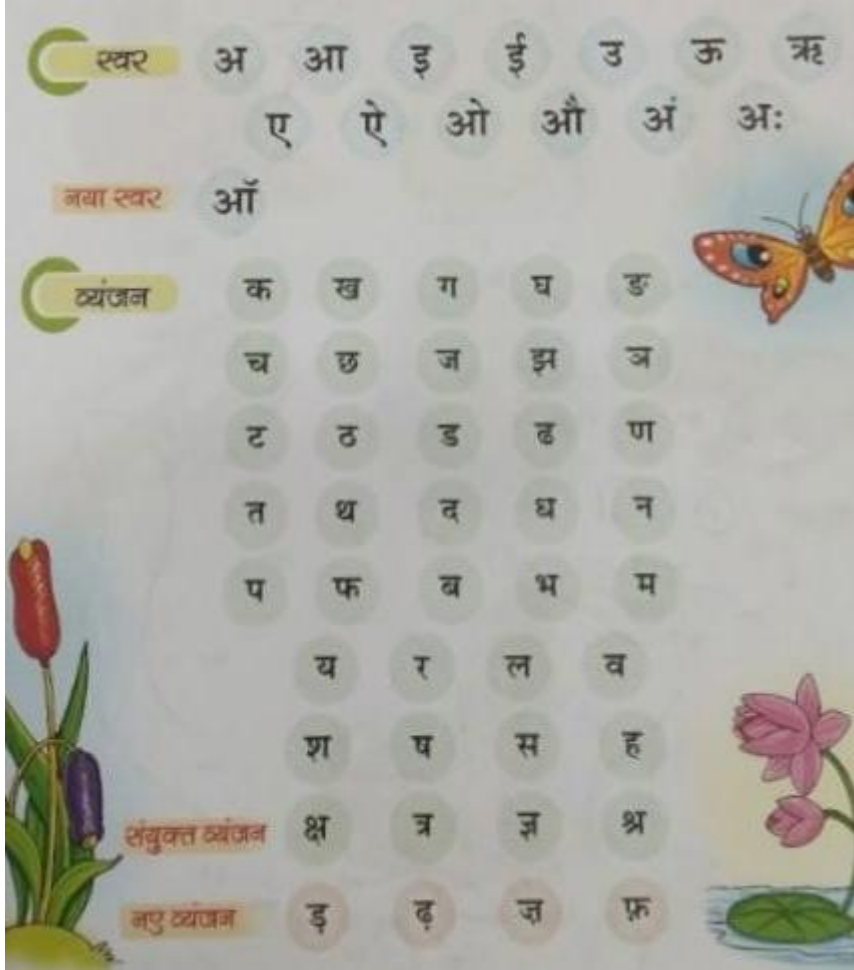 स्वर अ आ इ ई उ ऊ ऋ
ए ऐ ओ औ अं अः
नया स्वर ऑ
व्यंजन क ख ग घ ङ
च छ ज झ ञ
ट ठ ड ढ ण
त थ द ध न
प फ ब भ म
य र ल व
श ष स ह
संयुक्त व्यंजन क्ष त्र ज्ञ श्र
नए व्यंजन ड़ ढ़ ज़ फ़